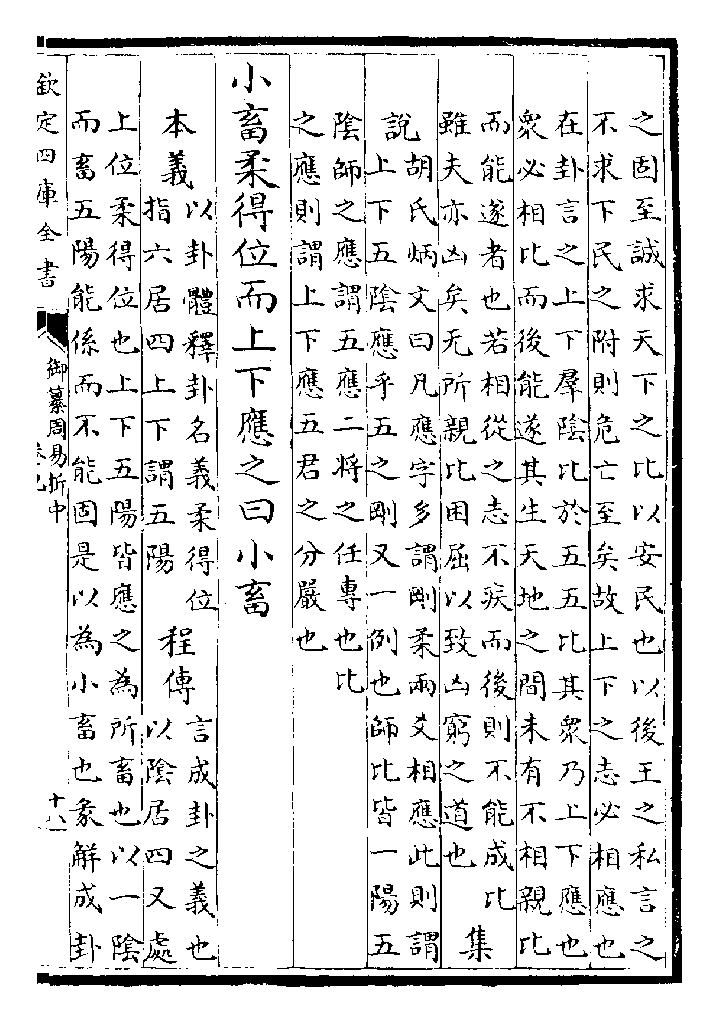 之固至誠求天下之比以安民也以後王之私言之
不求下民之附則危亡至矣故上下之志必相應也
在卦言之上下羣陰比於五五比其衆乃上下應也
衆必相比而後能遂其生天地之間未有不相親比
而能遂者也若相從之志不疾而後則不能成比
雖夫亦凶矣无所親比困屈以致凶窮之道也
集
說
胡氏炳文曰凡應字多謂剛柔兩爻相應此則謂
上下五陰應乎五之剛又一例也師比皆一陽五
陰師之應謂五應二將之任專也比
之應則謂上下應五君之分嚴也
小畜柔得位而上下應之曰小畜
本義
以卦體釋卦名義柔得位
指六居四上下謂五陽
程傳
言成卦之義也
以陰居四又處
上位柔得位也上下五陽皆應之為所畜也以一陰
而畜五陽能係而不能固是以為小畜也彖解成卦
欽定四庫全書
御纂周易折中
卷九
十八